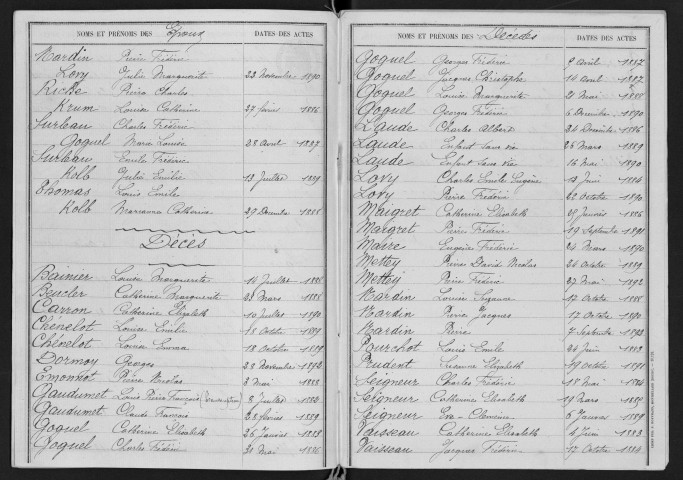 NOMS ET PRÉNOMS DES Epoux DATES DES ACTES
Mardin Pierre Frédéric
Lovy Julie Marguerite 22 Novembre 1890
Riche Pierre Charles
Krum Louise Catherine 27 février 1886
Surleau Charles Frédéric
Goguel Marie Louise 28 Avril 1887
Surleau Emile Frédéric
Kolb Julie Emilie 12 Juillet
Thomas Louis Emile
Kolb Marianne Catherine 29 Décembre 1888
Décès
Bainier Louise Marguerite 14 Juillet
Beucler Catherine Marguerite 25 Mars 1888
Carron Catherine Elizabeth 10 Juillet 1890
Chénelot Louise Emilie 18 Octobre 1889
Chénelot Louise Emma 18 Octobre 1889
Dormoy Georges 28 Novembre 1892
Emonnot Pierre Nicolas 3 Mai 1888
Gaudumet Louis Pierre François 8 Juillet
Gaudumet Claude François 28 février 1889
Goguel Catherine Elisabeth 26 Janvier 1888
Goguel Charles Frédéric 31 Mai 1886
NOMS ET PRÉNOMS DES Décédés DATES DES ACTES
Goguel Georges Frédéric 9 Avril 1887
Goguel Jacques Christophe 14 Avril 1887
Goguel Louise Marguerite 21 Mai 1888
Goguel Georges Frédéric 6 Décembre 1890
Laude Charles Albert 26 Décembre 1886
Laude Enfant Sans vie 26 Mars 1889
Laude Enfant Sans vie 16 Mai 1890
Lovy Charles Emile Eugène 13 Juin 1884
Lovy Pierre Frédéric 22 Octobre 1890
Maigret Catherine Elisabeth 29 Janvier 1886
Maigret Pierre Frédéric 19 Septembre 1891
Maire Eugénie Frédéric 24 Mars 1890
Mettey Pierre David Nicolas 26 Octobre 1889
Mettey Pierre Frédéric 27 Mai 1892
Mardin Louise Suzanne 17 Octobre 1888
Mardin Pierre Jacques 17 Octobre 1890
Mardin Pierre 7 Septembre 1892
Pourchot Louis Emile 26 Juin 1883
Prudent Suzanne Elizabeth 29 Octobre 1891
Seigneur Charles Frédéric 18 Mai 1884
Seigneur Catherine Elisabeth 19 Mars 1885
Seigneur Eva Clémence 6 Janvier 1889
Vaisseau Catherine Elisabeth 4 Juin 1883
Vaisseau Jacques Frédéric 17 Octobre 1884